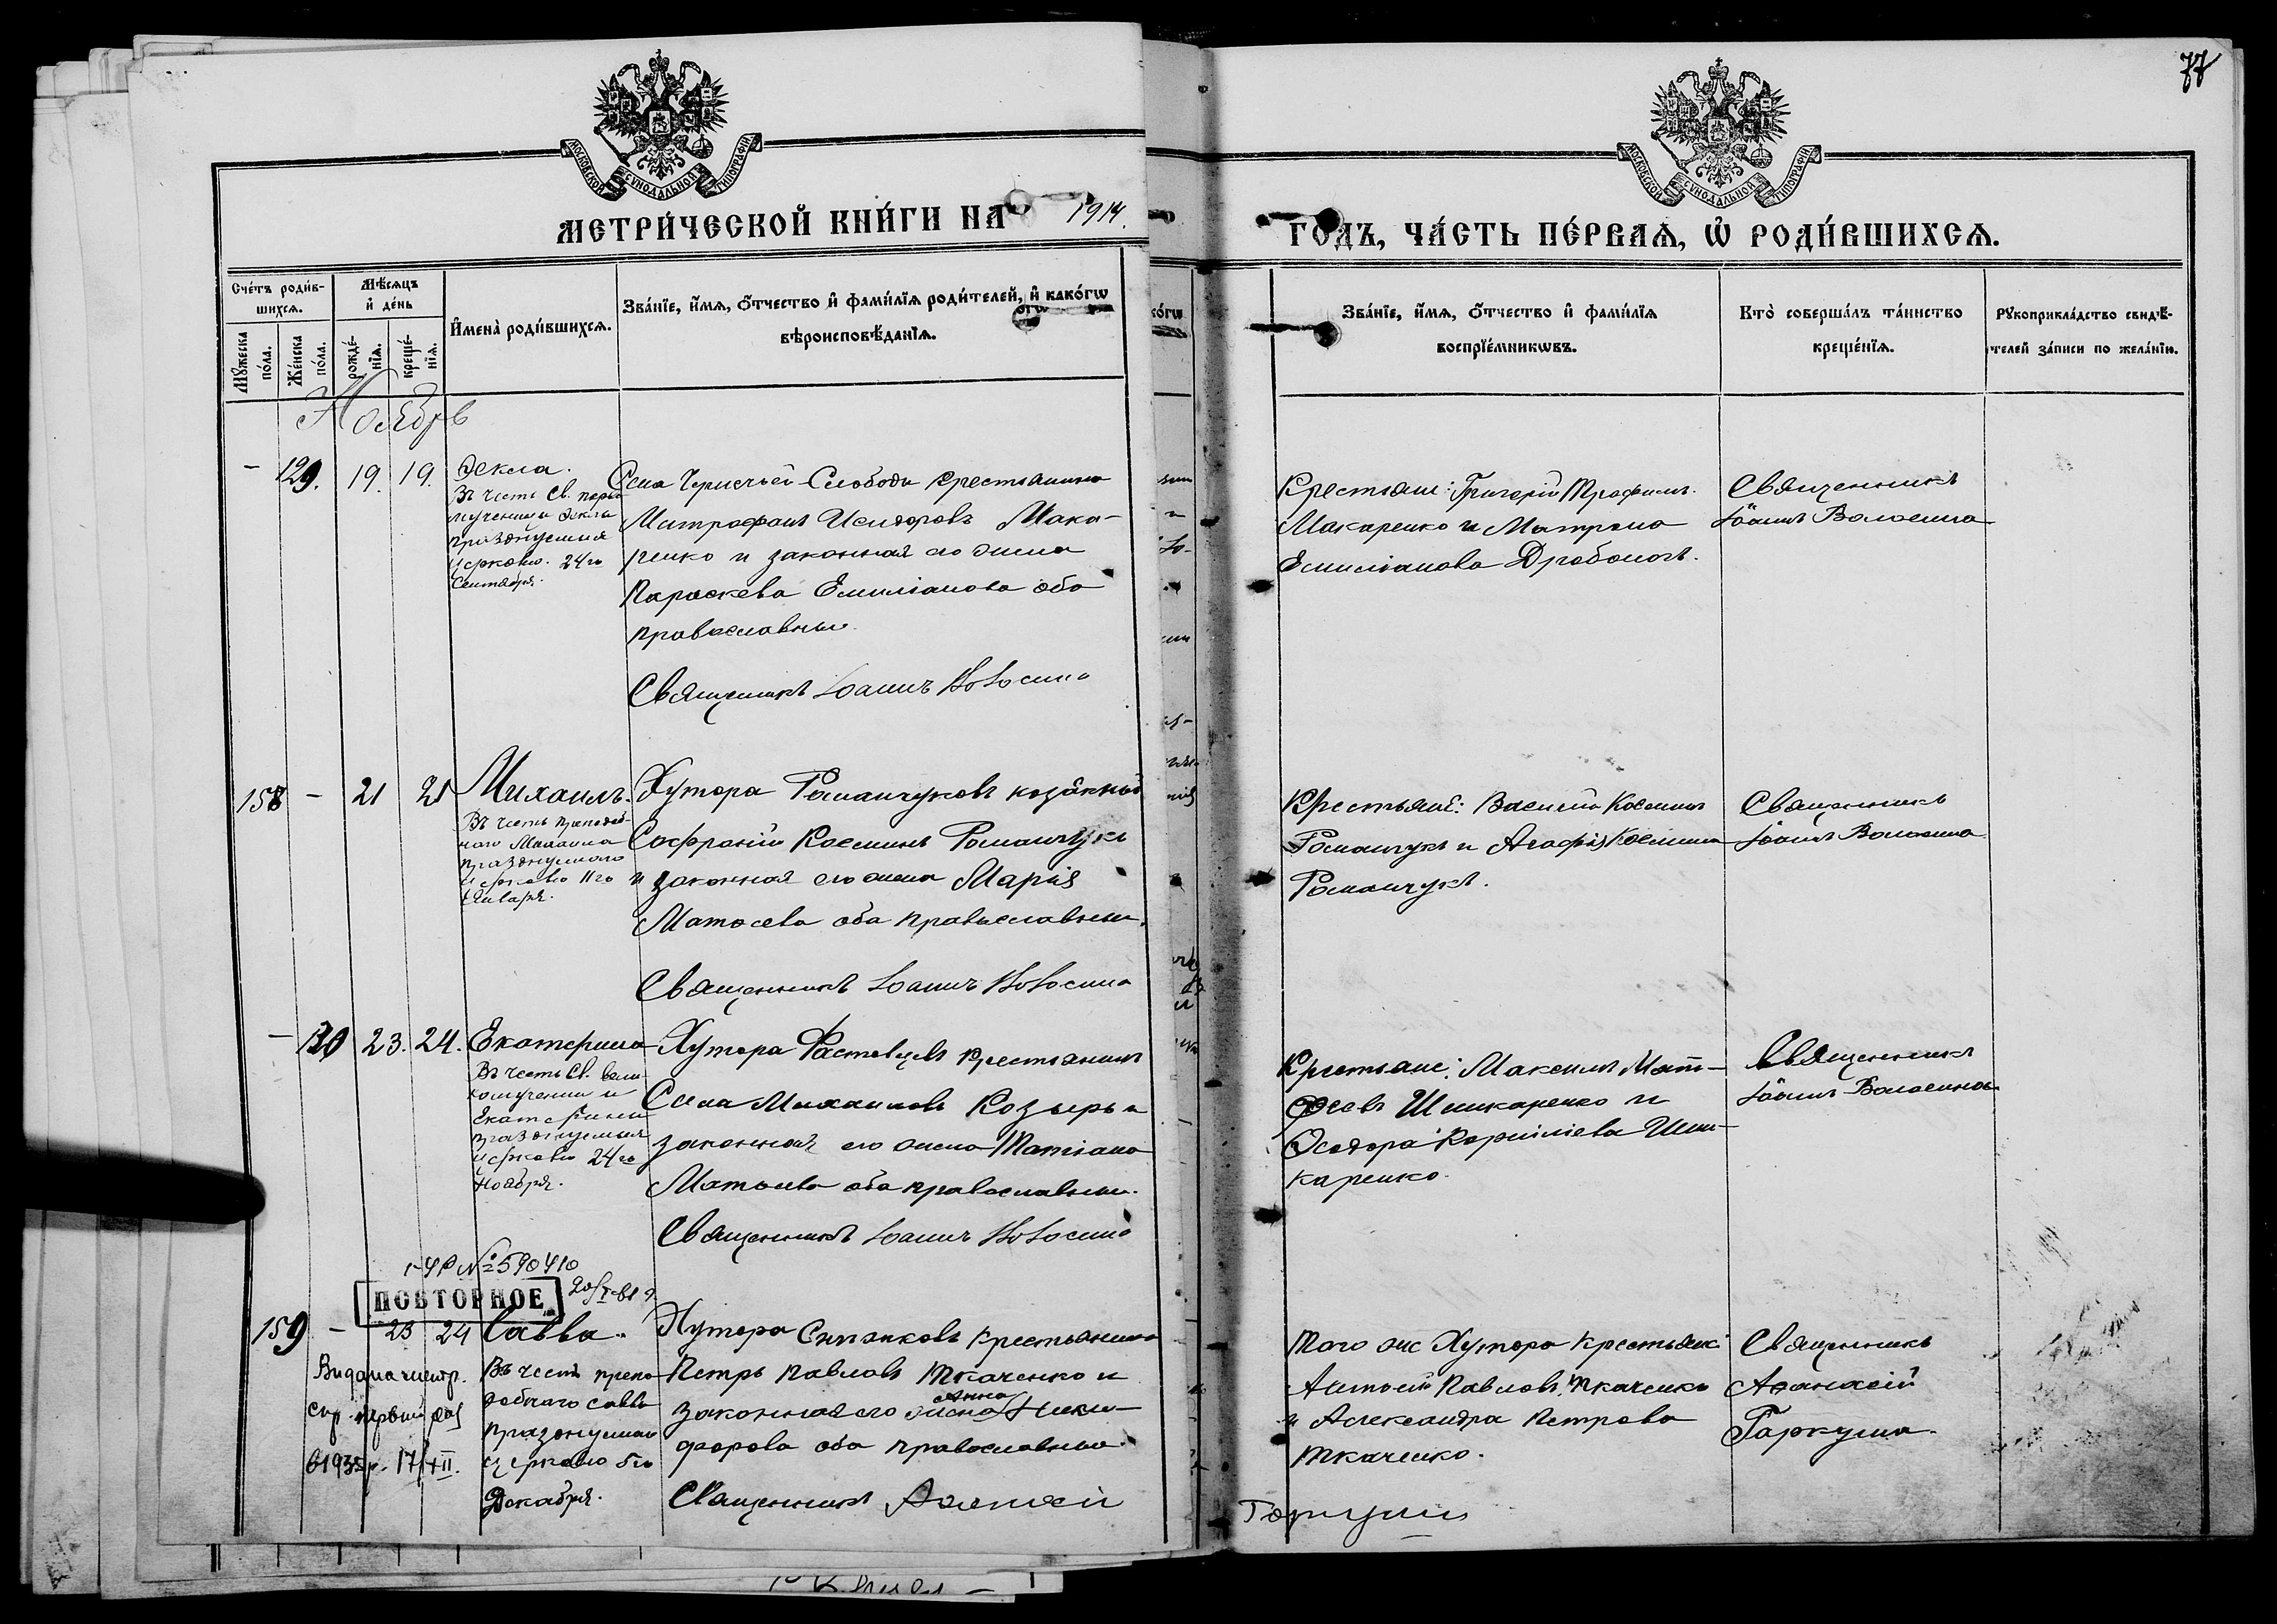 77
МОСКОВСКОЙ СѴНОДАЛЬНОЙ ТИПОГРАФІИ
МОСКОВСКОЙ СѴНОДАЛЬНОЙ ТИПОГРАФІИ
МЕТРИ́ЧЕСКОЙ КНИ́ГИ НА 1914.
ГОДЪ, ЧА́СТЬ ПЕ́РВАѦ, Ѽ РОДИ́ВШИХСѦ.
Сче́тъ роди́в-
шихсѧ.
Мꙋжеска по́ла.
Же́нска по́ла.
Мѣ́сѧцъ
и҆ де́нь
рожде́-
нїѧ.
креще́-
нїѧ.
И҆мена̀ роди́вшихсѧ.
Зва́нїе, и҆́мѧ, ѻ҆́тчество и҆ фами́лїѧ роди́телей, и҆ како́гѡ
вѣроисповѣ́данїѧ.
Зва́нїе, и҆́мѧ, ѻ҆́тчество и҆ фами́лїѧ
воспрїе́мникѡвъ.
Кто̀ соверша́лъ та́инство
креще́нїѧ.
Рꙋкоприкла́дство свидѣ́-
телей за́писи по жела́нїю.
Ноябрь
- 129. 19. 19. Ѳекла.
Въ честь Св. перво
мученицы Ѳеклы
празднуемыя
церковію 24го
Сентября.
Крестьянинъ
Митрофанъ Исидоровъ Мака-
ренко и законная его жена
Параскева Емиліанова оба
православные.
Священникъ Іоаннъ Волосина
Крестьяне: Григорій Трофимъ.
Макаренко и Матрона
Емиліанова
Священникъ
Іоаннъ Волосина
158 - 21 21 Михаилъ.
Въ честь преподоб-
наго Михаила
празднуемаго
церковію 11го
Января.
Хутора Романчуковъ козакъ
Софроній Косминъ Романчукъ
и законная его жена Марія
Матѳеева оба православные.
Священникъ Іоаннъ Волосина
Крестьяне: Василій Косминъ
Романчукъ и Агафія Космина
Романчукъ.
Священникъ
Іоаннъ Волосина
- 130 23. 24. Екатерина
Въ честь Св. вели-
комученицы
Екатерины
празднуемыя
церковію 24го
Ноября.
Хутора Растовцевъ крестьянинъ
Сила Михаиловъ Козырь и
законная его жена Татіана
Матѳеева оба православные.
Священникъ Іоаннъ Волосина
Крестьяне: Максимъ Мат-
ѳеевъ Шинкаренко и
Ѳеодора Корниліева Шин-
каренко.
Священникъ
Іоаннъ Волосина
№ 590410
ПОВТОРНОЕ
159 - 23 24 Савва.
Въ честь препо-
добнаго Саввы
празднуемаго
церковію 5го
Декабря.
Видана метр.
первый раз
в 1935р. 17/XII.
Хутора Крестьянинъ
Петръ Павловъ Ткаченко и
законная его жена Анна Ники-
форова оба православные.
Священникъ Аѳанасій
Гаркуша
Того же Хутора крестьяне:
Антоній Павловъ Ткаченко
и Александра Петрова
Ткаченко.
Священникъ
Аѳанасій
Гаркуша.